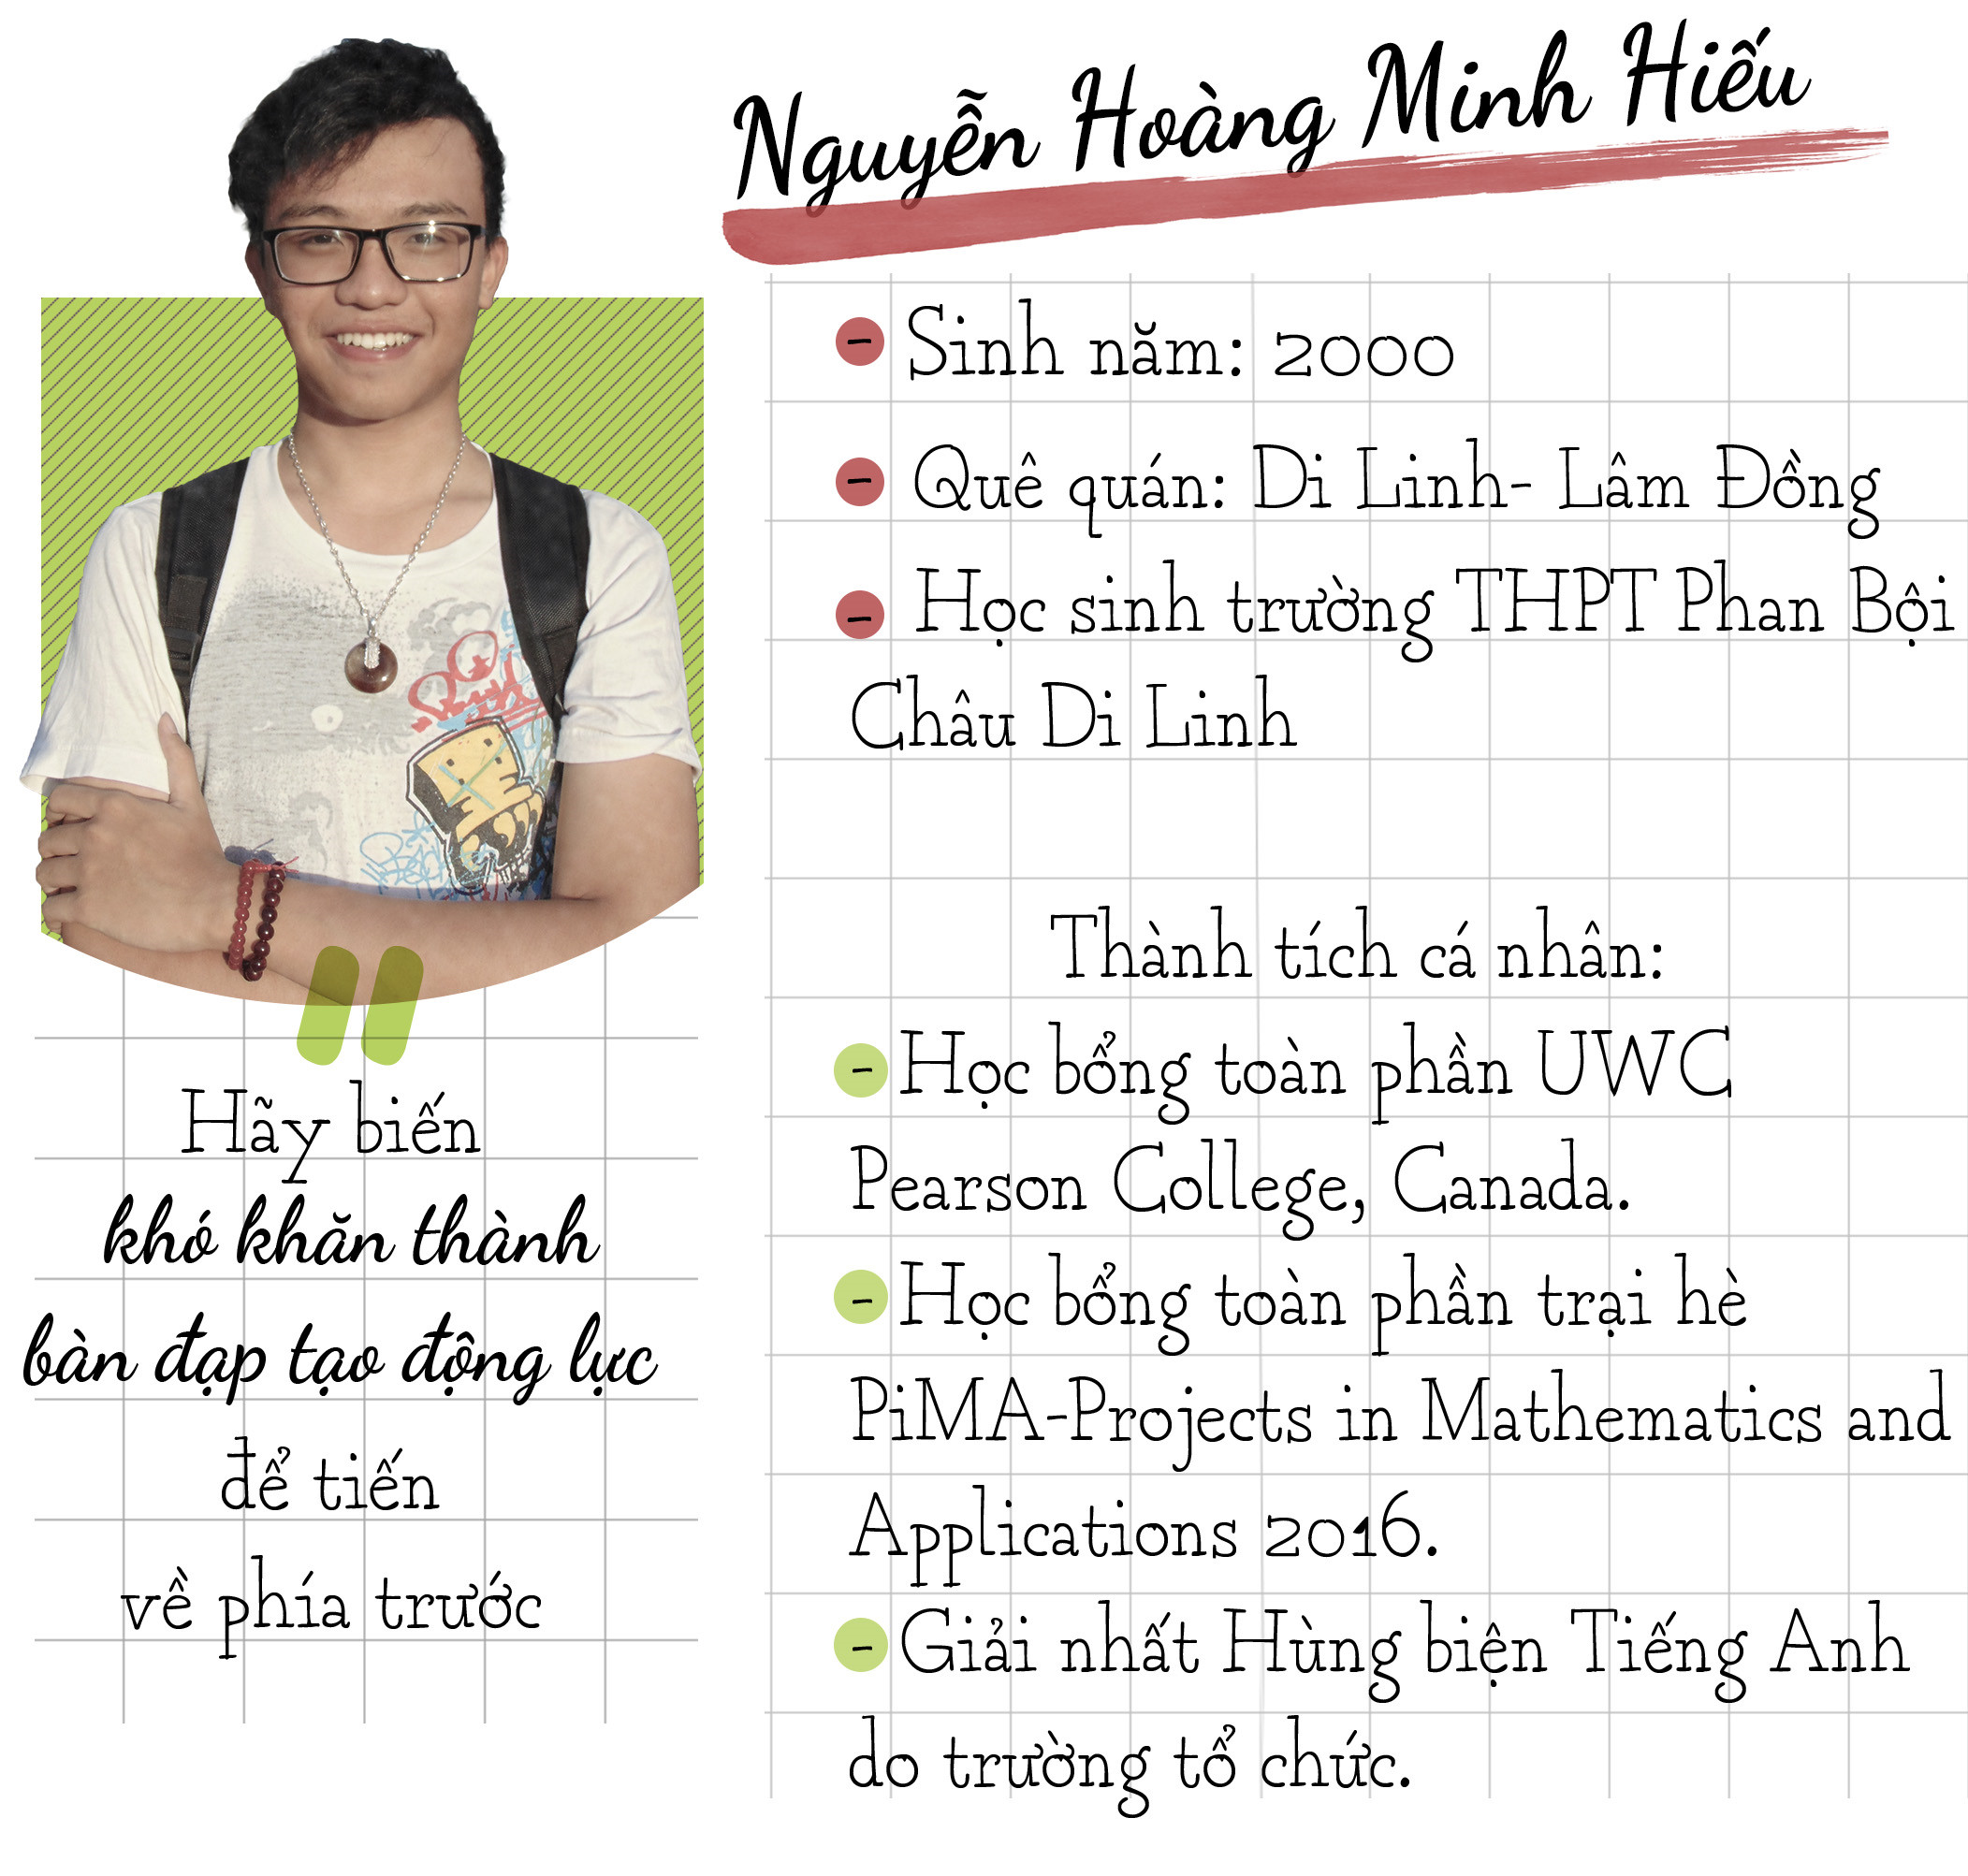 Nguyễn Hoàng Minh Hiếu
- Sinh năm: 2000
- Quê quán: Di Linh- Lâm Đồng
- Học sinh trường THPT Phan Bội
Châu Di Linh
Thành tích cá nhân:
- Học bổng toàn phần UWC
Pearson College, Canada.
- Học bổng toàn phần trại hè
PiMA-Projects in Mathematics and
Applications 2016.
- Giải nhất Hùng biện Tiếng Anh
do trường tổ chức.
"
Hãy biến
khó khăn thành
bàn đạp tạo động lực
để tiến
về phía trước